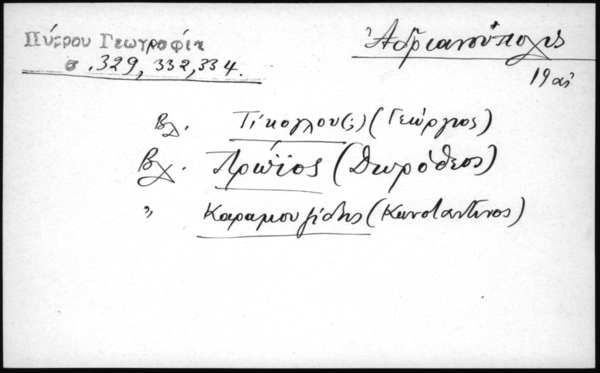 Πύρρου Γεωγραφία
σ. 329, 332, 334.
Ἀδριανούπολις
19 αἰ
Βλ. Τίκογλου(;) (Γεώργιος)
Βλ. Πρώϊος (Δωρόθεος)
" Καραμουζίδης (Κωνσταντῖνος)